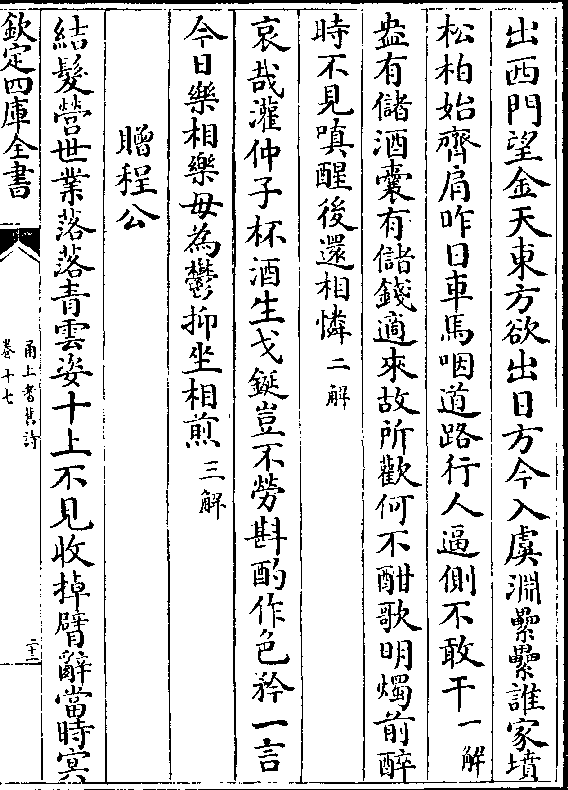 出西門望金天東方欲出日方今入虞淵纍纍誰家墳
松柏始齊肩昨日車馬咽道路行人逼側不敢干一解
盎有儲酒囊有儲錢適來故所歡何不酣歌明燭前醉
時不見嗔醒後還相憐二解
哀哉灌仲子杯酒生戈鋋豈不勞斟酌作色矜一言
今日樂相樂毋為鬱抑坐相煎三解
贈程公
結髮營世業落落青雲姿十上不見收掉臂辭當時冥
欽定四庫全書
甬上耆舊詩
卷十七
二十二